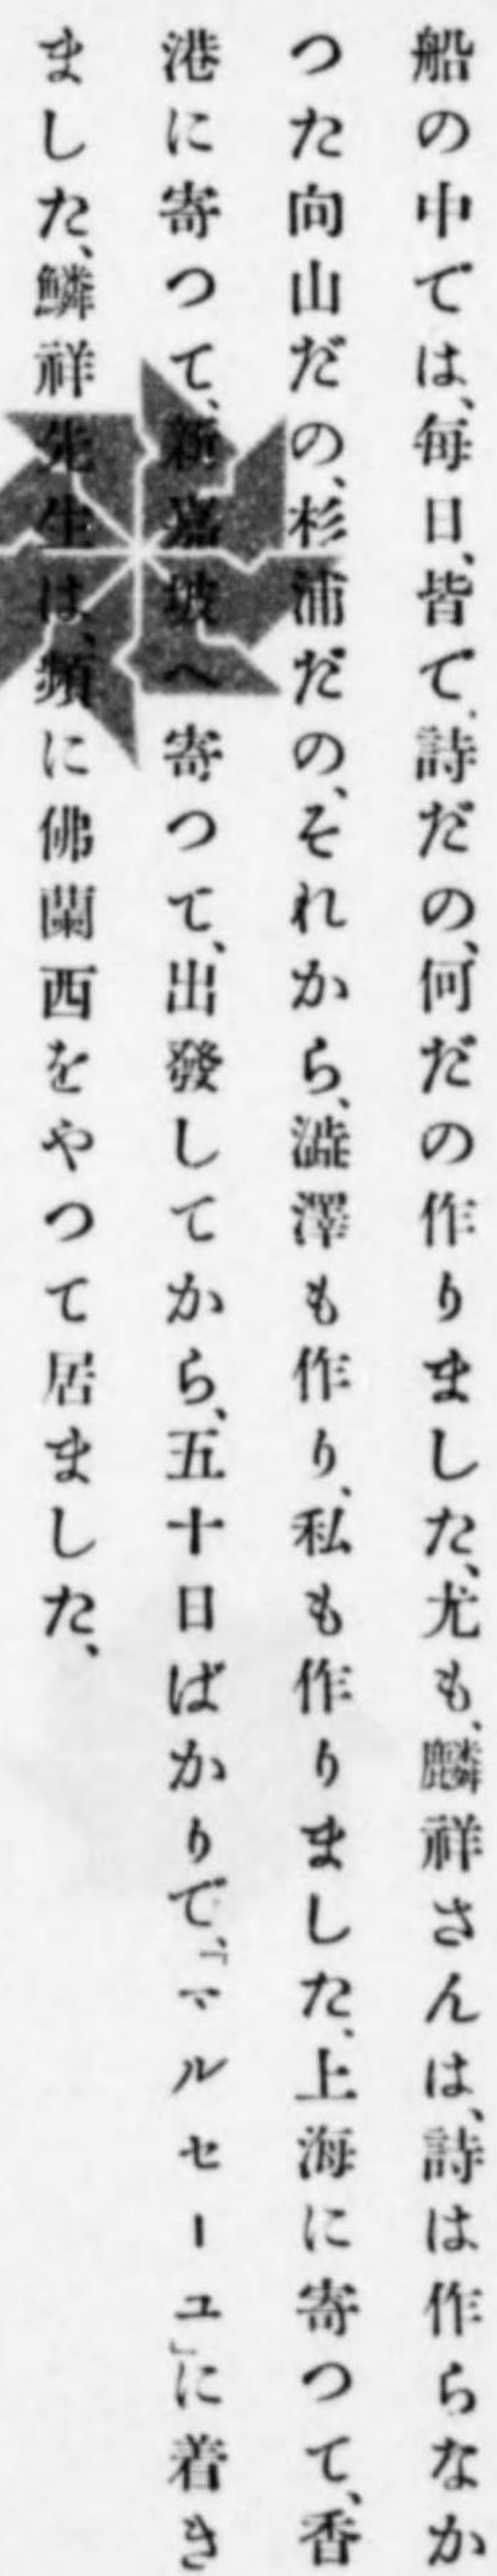 船の中では、毎日、皆で、詩だの、何だの作りました、尤も、麟祥さんは、詩は作らなか
つた向山だの、杉浦だの、それから、澁澤も作り、私も作りました、上海に寄つて、香
港に寄つて、新嘉坡へ寄つて、出發してから、五十日ばかりで、「マルセーユ」に着き
ました、鱗祥先生は、頻に佛蘭西をやつて居ました、